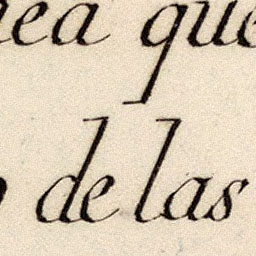 que
de las